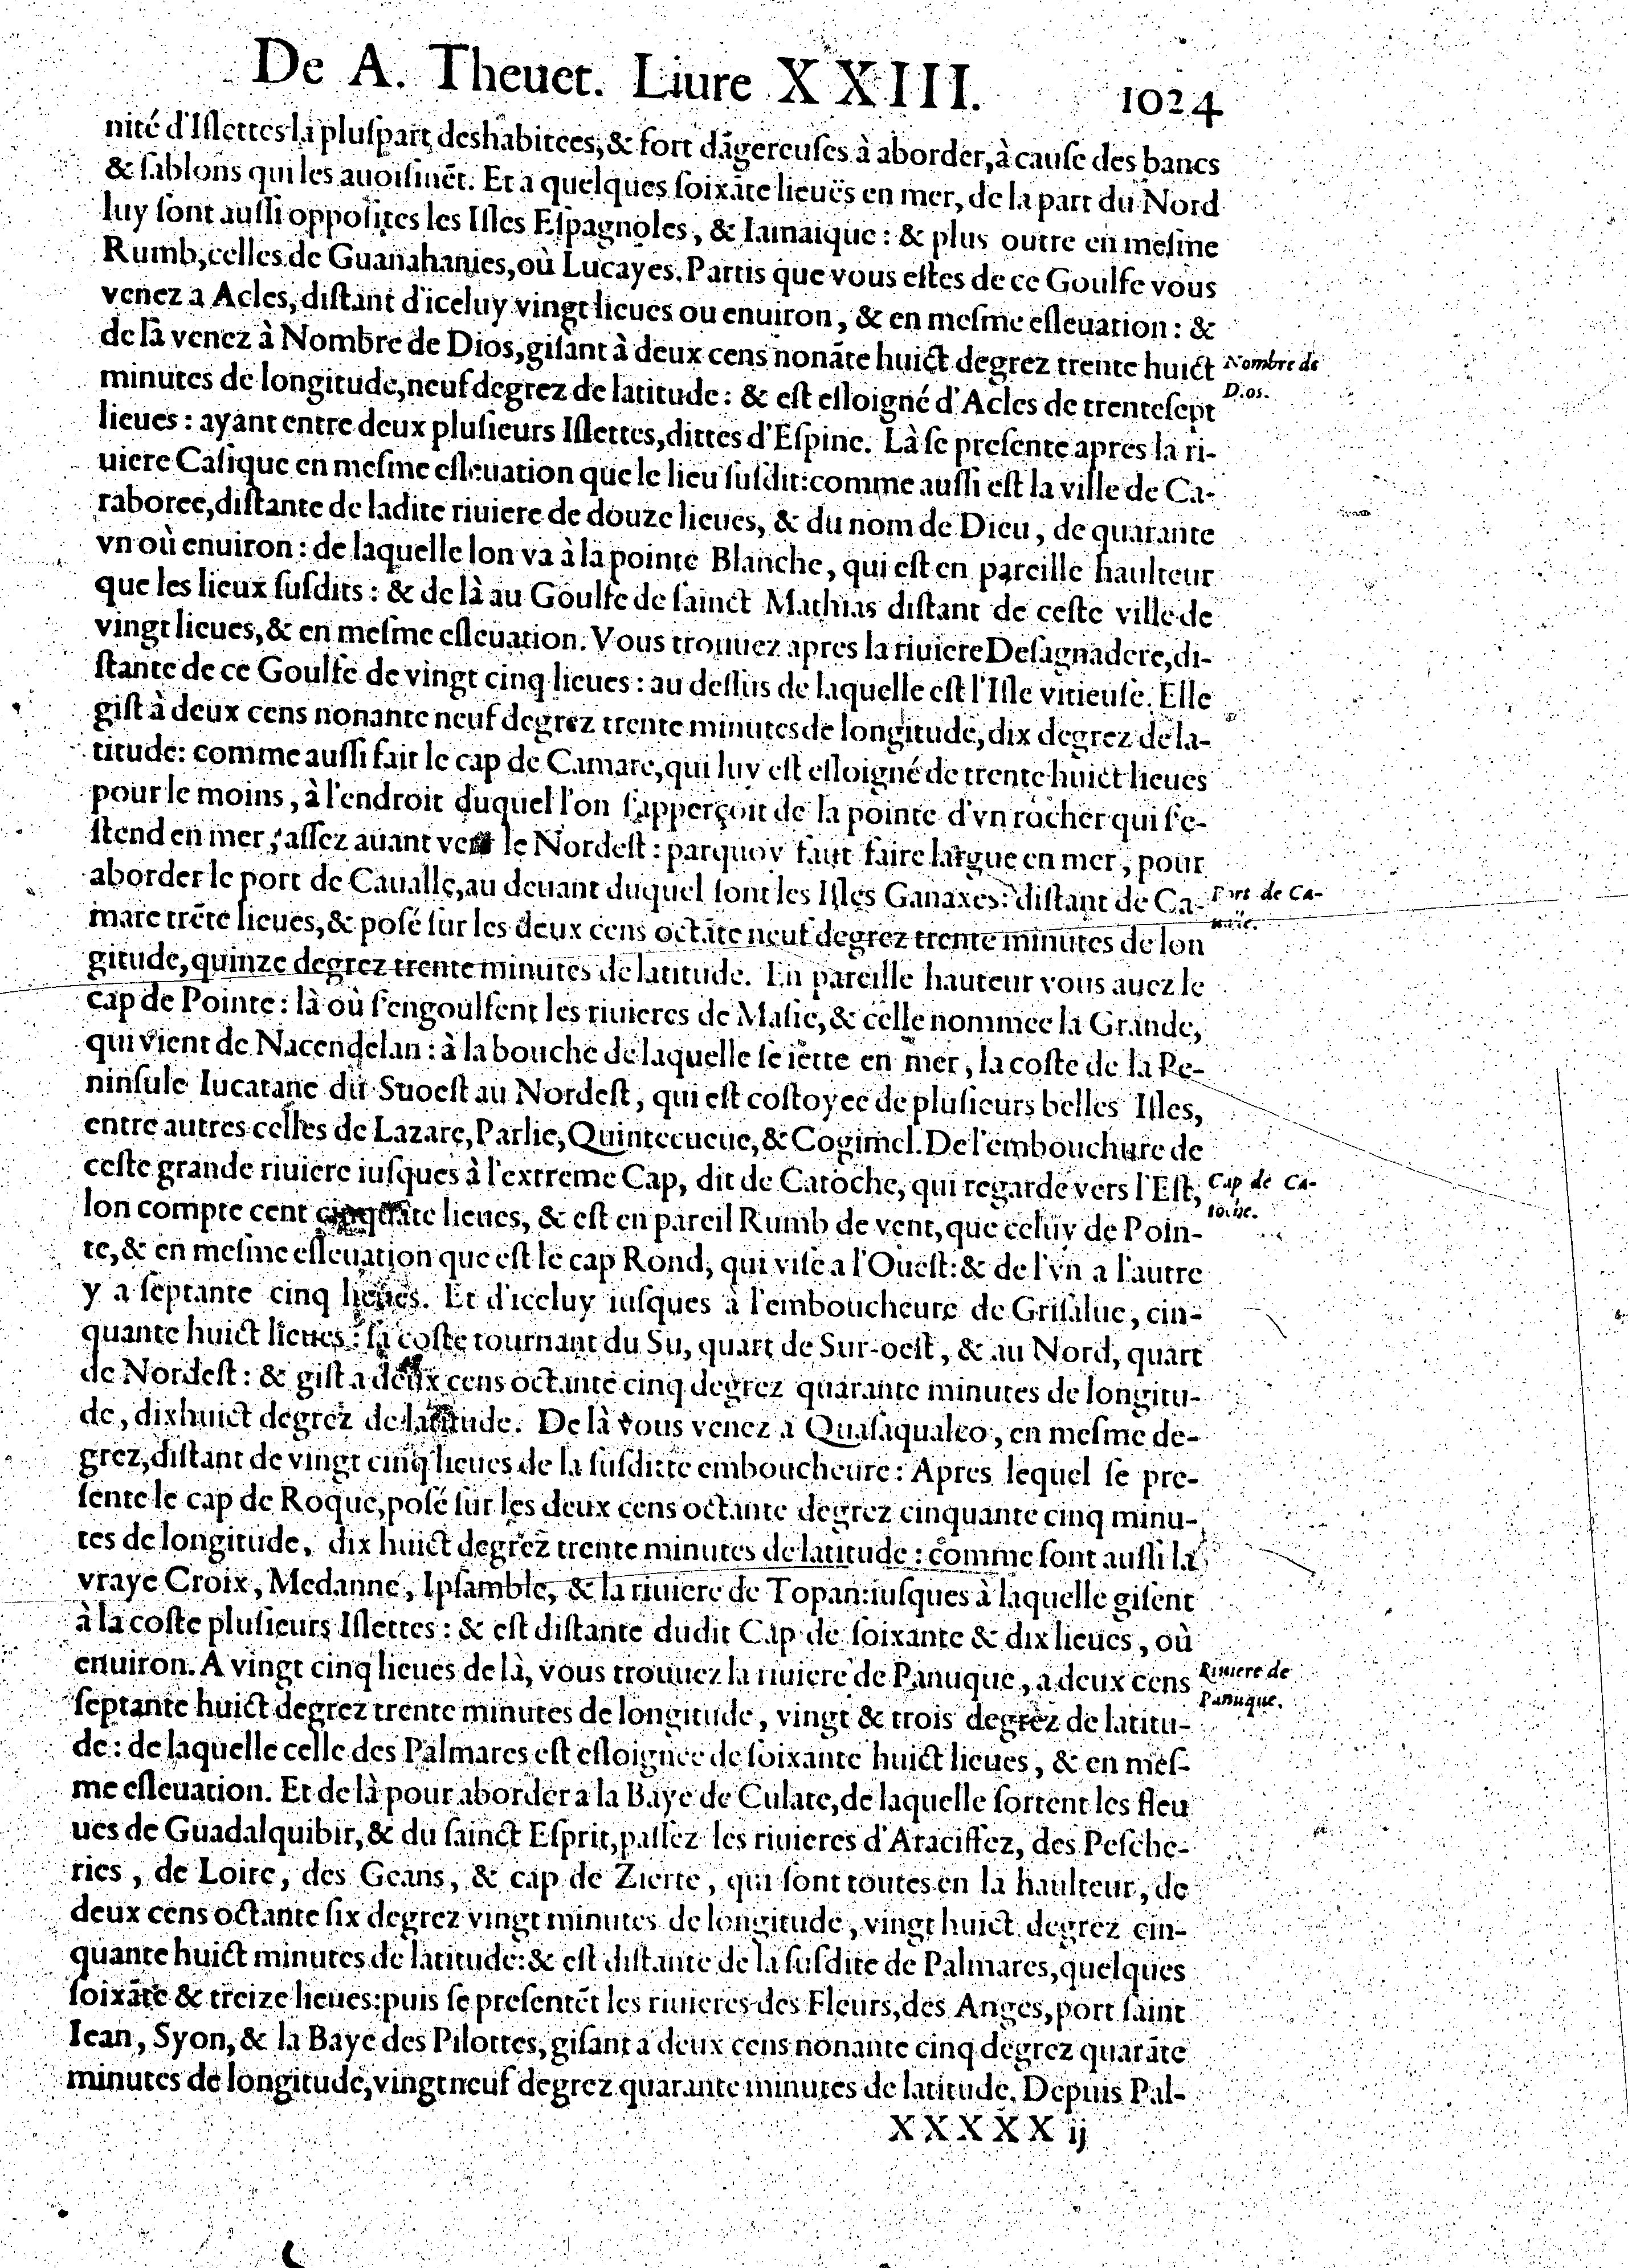 De A. Theuet. Liure XXIII. 1024
nité d'Iſlettes la pluſpart deshabitees, & fort dāgereuſes à aborder, à cauſe des bancs
& ſablons qui les auoiſinēt. Et a quelques ſoixāte lieuës en mer, de la part du Nord
luy ſont auſſi oppoſites les Iſles Eſpagnoles, & Iamaique: & plus outre en meſme
Rumb, celles de Guanahanies, où Lucayes. Partis que vous eſtes de ce Goulfe vous
venez a Acles, diſtant d'iceluy vingt lieues ou enuiron, & en meſme eſleuation: &
de là venez à Nombre de Dios, giſant à deux cens nonāte huict degrez trente huict
Nombre de
Dios.
minutes de longitude, neuf degrez de latitude: & eſt eſloigné d'Acles de trenteſept
lieues: ayant entre deux pluſieurs Iſlettes, dittes d'Eſpine. Là ſe preſente apres la ri-
uiere Caſique en meſme eſleuation que le lieu ſuſdit: comme auſſi eſt la ville de Ca-
raboree, diſtante de ladite riuiere de douze lieues, & du nom de Dieu, de quarante
vn où enuiron: de laquelle lon va à la pointe Blanche, qui eſt en pareille haulteur
que les lieux ſuſdits: & de là au Goulfe de ſainct Mathias diſtant de ceſte ville de
vingt lieues, & en meſme eſleuation. Vous trouuez apres la riuiere Deſagnadere, di-
ſtante de ce Goulfe de vingt cinq lieues: au deſſus de laquelle eſt l'Iſle vitieuſe. Elle
giſt à deux cens nonante neuf degrez trente minutes de longitude, dix degrez de la-
titude: comme auſſi fait le cap de Camare, qui luy eſt eſloigné de trente huict lieues
pour le moins, à l'endroit duquel l'on ſ'apperçoit de la pointe d'vn rocher qui ſ'e-
ſtend en mer, aſſez auant vers le Nordeſt: parquoy faut faire largue en mer, pour
aborder le port de Caualle, au deuant duquel ſont les Iſles Ganaxes: diſtant de Ca-
Port de Ca-
ualle.
mare trēte lieues, & poſé ſur les deux cens octāte neuf degrez trente minutes de lon
gitude, quinze degrez trente minutes de latitude. En pareille hauteur vous auez le
cap de Pointe: là où ſ'engoulfent les riuieres de Maſie, & celle nommee la Grande,
qui vient de Nacendelan: à la bouche de laquelle ſe iette en mer, la coſte de la Pe-
ninſule Iucatane du Suoeſt au Nordeſt, qui eſt coſtoyee de pluſieurs belles Iſles,
entre autres celles de Lazare, Parlie, Quintecueue, & Cogimel. De l'embouchure de
ceſte grande riuiere iuſques à l'extreme Cap, dit de Catoche, qui regarde vers l'Eſt,
Cap de Ca-
toche.
lon compte cent cinquāte lieues, & eſt en pareil Rumb de vent, que celuy de Poin-
te, & en meſme eſleuation que eſt le cap Rond, qui viſe a l'Oueſt: & de l'vn a l'autre
y a ſeptante cinq lieues. Et d'iceluy iuſques à l'emboucheure de Griſalue, cin-
quante huict lieues: ſa coſte tournant du Su, quart de Sur-oeſt, & au Nord, quart
de Nordeſt: & giſt a deux cens octante cinq degrez quarante minutes de longitu-
de, dixhuict degrez de latitude. De là vous venez a Quaſaqualco, en meſme de-
grez, diſtant de vingt cinq lieues de la ſuſditte emboucheure: Apres lequel ſe pre-
ſente le cap de Roque, poſé ſur les deux cens octante degrez cinquante cinq minu-
tes de longitude, dix huict degrez trente minutes de latitude: comme ſont auſſi la
vraye Croix, Medanne, Ipſamble, & la riuiere de Topan: iuſques à laquelle giſent
à la coſte pluſieurs Iſlettes: & eſt diſtante dudit Cap de ſoixante & dix lieues, où
enuiron. A vingt cinq lieues de là, vous trouuez la riuiere de Panuque, a deux cens
Riuiere de
Panuque.
ſeptante huict degrez trente minutes de longitude, vingt & trois degrez de latitu-
de: de laquelle celle des Palmares eſt eſloignee de ſoixante huict lieues, & en meſ-
me eſleuation. Et de là pour aborder a la Baye de Culate, de laquelle ſortent les fleu
ues de Guadalquibir, & du ſainct Eſprit, paſſez les riuieres d'Araciffez, des Peſche-
ries, de Loire, des Geans, & cap de Zierte, qui ſont toutes en la haulteur, de
deux cens octante ſix degrez vingt minutes de longitude, vingt huict degrez cin-
quante huict minutes de latitude: & eſt diſtante de la ſuſdite de Palmares, quelques
ſoixāte & treize lieues: puis ſe preſentēt les riuieres des Fleurs, des Anges, port ſaint
Iean, Syon, & la Baye des Pilottes, giſant a deux cens nonante cinq degrez quarāte
minutes de longitude, vingt neuf degrez quarante minutes de latitude. Depuis Pal-
XXXXX ij